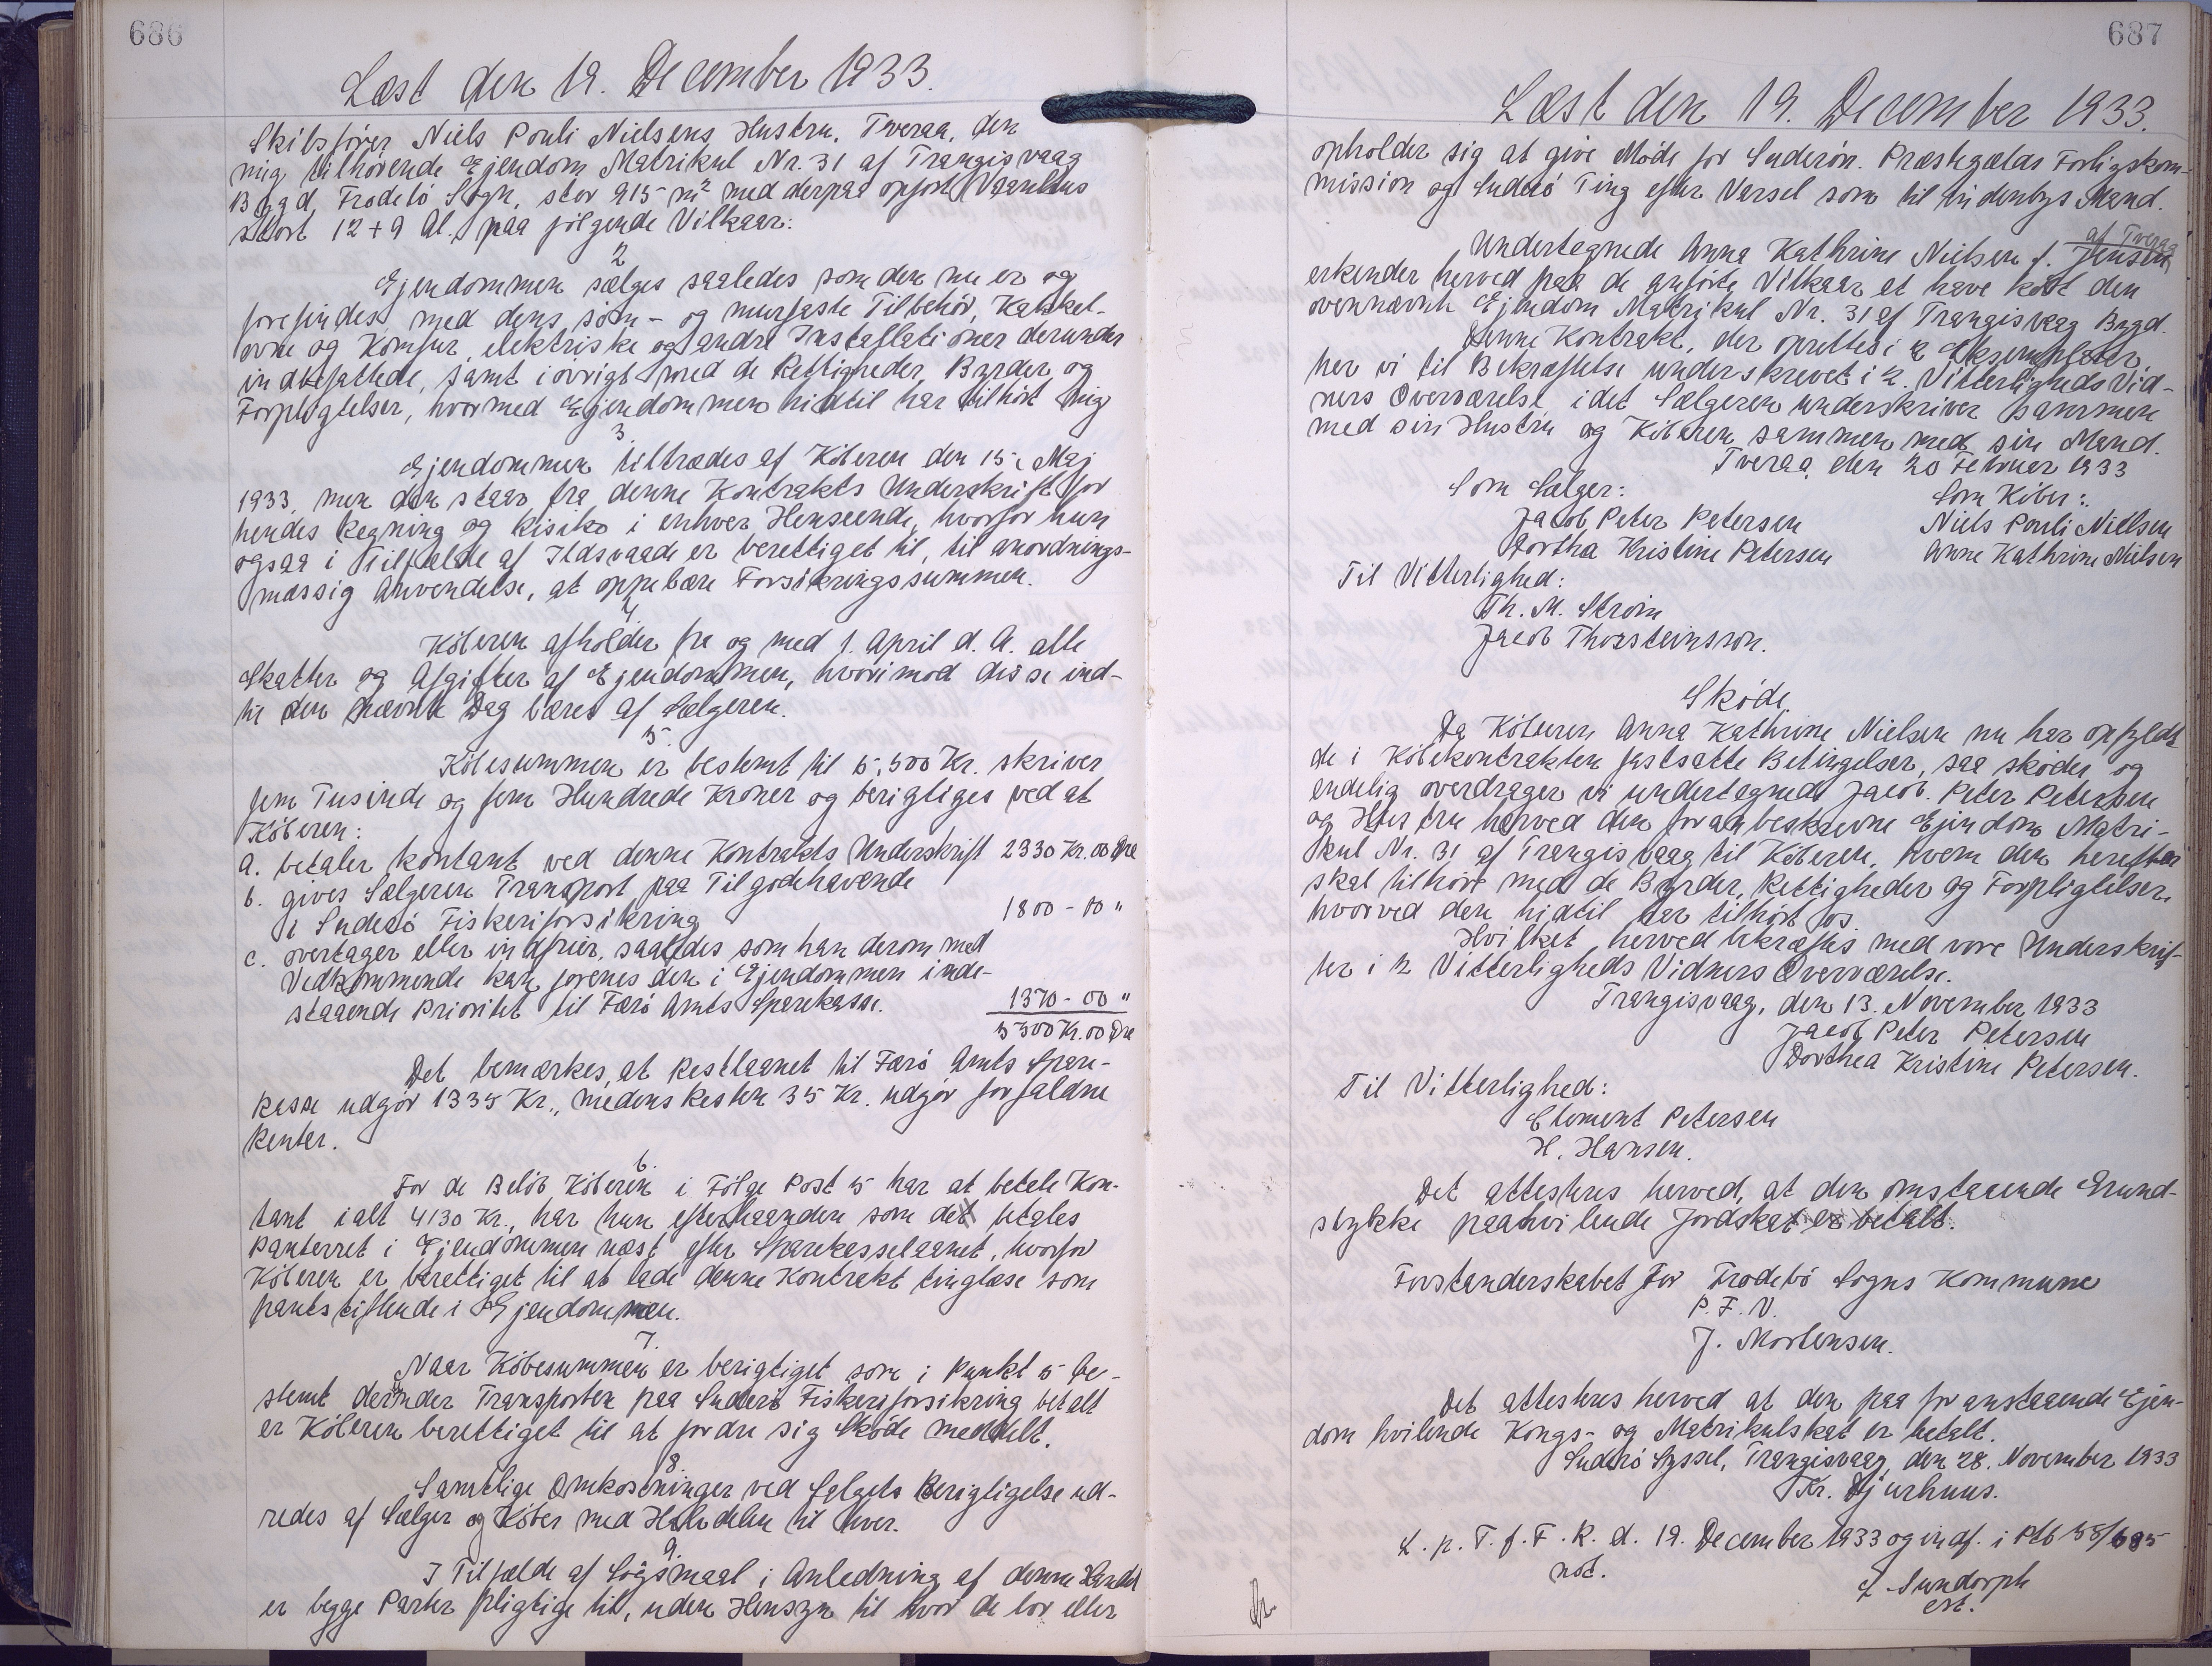 686
Læst den 19. December 1933.
Skibsfører Niels Pouli Nielsens Hustru, Tveraa, den
mig tilhørende Ejendom Matrikul Nr. 31 af Trangisvaag
Bygd, Frodebö Sogn, stor 915 m² med derpaa opført Vaanhus
stort 12 + 9 Al. paa følgende Vilkaar:
2
Ejendommen sælges saaledes som den nu er og
forefindes med dens söm- og murfaste Tilbehör, Kakkel-
ovne og Komfur, elektriske og andre Installationer derunder
indbefattede, samt iövrigt med de Rettigheder, Byrder og
Forpligtelser, hvormed Ejendommen hidtil har tilhört mig
3.
Ejendommen tiltrædes af Köberen den 15. Maj
1933, men den staar fra denne Kontrakts Underskrift for
hendes Regning og Risiko i enhver Henseende, hvorfor hun
ogsaa i Tilfælde af Ildsvaade er berettiget til, til anordnings-
mæssig Anvendelse, at oppebære Forsikringssummen.
4
Köberen afholder fra og med 1. April d. A. alle
Skatter og Afgifter af Ejendommen, hvorimod disse ind-
til den nævnte Dag bæres af Sælgeren.
5.
Köbesummen er bestemt til 5,500 Kr. skriver
fem Tusinde og fem Hundrede Kroner og berigtiges ved at
Köberen:
a. betaler kontant ved denne Kontrakts Underskrift 2330 Kr. 00 Øre
b. giver Sælgeren Transport paa Tilgodehavende
i Suderö Fiskeriforsikring 1800 - 00 "
c. overtager eller indfrier, saaledes som han derom med
Vedkommende kan forenes den i Ejendommen inde-
staaende Prioritet til Færö Amts Sparekasse. 1370 - 00 "
5500 Kr. 00 Øre
Det bemærkes, at Restlaanet til Færö Amts Spare-
kasse udgör 1335 Kr., medens Resten 35 Kr. udgör forfaldne
Renter.
6.
For de Belöb Köberen i Fölge Post 5 har at betale Kon-
tant ialt 4130 Kr., har hun efterhaanden som det betales
Panteret i Ejendommen næst efter Sparekasselaanet, hvorfor
Köberen er berettiget til at lade denne Kontrakt tinglæse som
pantstiftende i Ejendommen.
7.
Naar Köbesummen er berigtiget som i Punkt 5 be-
stemt derunder Transporten paa Suderö Fiskeriforsikring betalt
er Köberen berettiget til at fordre sig Sköde meddelt.
8.
Samtlige Omkostninger ved Salgets Berigtigelse ud-
redes af Sælger og Köber med Halvdelen til hver.
9.
I Tilfælde af Sögsmaal i Anledning af denne Handel
er begge Parter pligtige til, uden Hensyn til hvor de bor eller
687
Læst den 19. December 1933.
opholder sig at give Möde for Suderön. Præstegælds Forligskom-
mission og Suderö Ting efter Varsel som til indenbys Mand.
af Tveraa
Undertegnede Anna Kathrine Nielsen f. Jensen
erkender herved paa de anförte Vilkaar at have köbt den
ovennævnte Ejendom Matrikul Nr. 31 af Trangisvaag Bygd.
Denne Kontrakt, der oprettes i 2 Eksemplarer,
har vi til Bekræftelse underskrevet i 2. Vitterligheds Vid-
ners Overværelse idet Sælgeren underskriver sammen
med sin Hustru og Köberen sammen med sin Mand.
Tveraa, den 20 Februar 1933
Som Sælger: Som Köber:
Jacob Peter Petersen Niels Pouli Nielsen
Dorthea Kristine Petersen Anne Kathrine Nielsen
Til Vitterlighed:
Th. M. Ström
Jacob Thorsteinsson.
Sköde.
Da Köberen Anna Kathrine Nielsen nu har opfyldt
de i Köbekontrakten fastsatte Betingelser, saa sköder og
endelig overdrager vi undertegnede Jacob. Peter Petersen
og Hustru herved den foranbeskrevne Ejendom Matri-
kul Nr. 31 af Trangisvaag til Köberen, hvem den herefter
skal tilhöre med de Byrder, Rettigheder og Forpligtelser,
hvorved den hidtil har tilhört os.
Hvilket herved bekræftes med vore Underskrif-
ter i 2 Vitterligheds Vidners Overværelse.
Trangisvaag, den 13. November 1933
Jacob Peter Petersen
Dorthea Kristine Petersen.
Til Vitterlighed:
Clement Petersen
H. Hansen.
Det attesteres herved, at den omstaaende Grund-
stykke paahvilende Jordskat er betalt.
Forstanderskabet for Frodebö Sogns Kommune
P. F. V.
J. Mortensen.
Det attesteres herved at den paa foranstaaende Ejen-
dom hvilende Kongs- og Matrikulskat er betalt.
Suderö Syssel, Trangisvaag, den 28. November 1933
Kr. Djurhuus.
L. p. T. f. F. R. d. 19. December 1933 og indf. i Ptb 58/685
not.
Sundorph
cst.